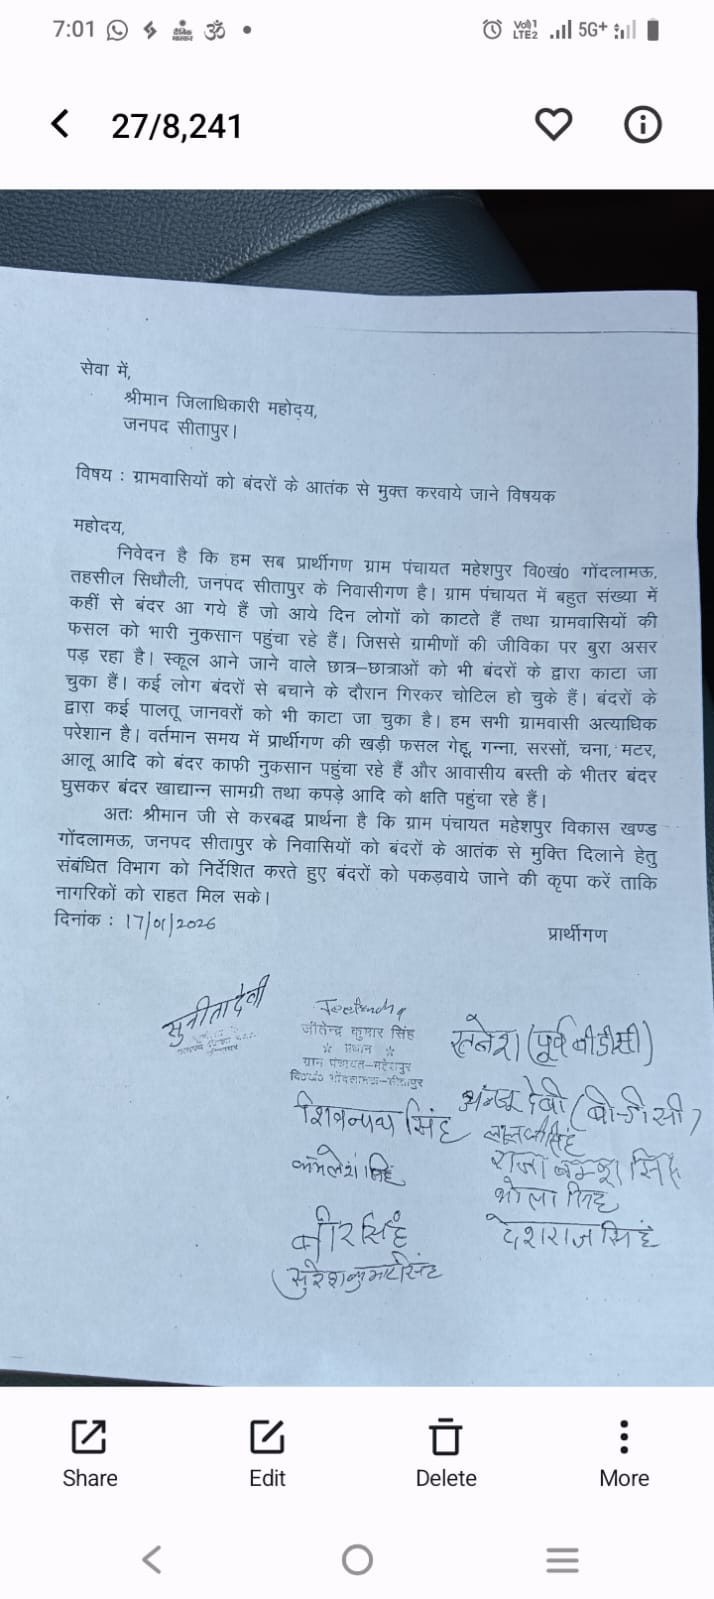 7:01
Vo))1 LTE2 5G+
27/8,241
सेवा में,
श्रीमान जिलाधिकारी महोदय,
जनपद सीतापुर।
विषय : ग्रामवासियों को बंदरों के आतंक से मुक्त करवाये जाने विषयक
महोदय,
निवेदन है कि हम सब प्रार्थीगण ग्राम पंचायत महेशपुर वि0खं0 गोंदलामऊ,
तहसील सिधौली, जनपद सीतापुर के निवासीगण है। ग्राम पंचायत में बहुत संख्या में
कहीं से बंदर आ गये हैं जो आये दिन लोगों को काटते हैं तथा ग्रामवासियों की
फसल को भारी नुकसान पहुंचा रहे हैं। जिससे ग्रामीणों की जीविका पर बुरा असर
पड़ रहा है। स्कूल आने जाने वाले छात्र-छात्राओं को भी बंदरों के द्वारा काटा जा
चुका हैं। कई लोग बंदरों से बचाने के दौरान गिरकर चोटिल हो चुके हैं। बंदरों के
द्वारा कई पालतू जानवरों को भी काटा जा चुका है। हम सभी ग्रामवासी अत्याधिक
परेशान है। वर्तमान समय में प्रार्थीगण की खड़ी फसल गेहू, गन्ना, सरसों, चना, मटर,
आलू आदि को बंदर काफी नुकसान पहुंचा रहे हैं और आवासीय बस्ती के भीतर बंदर
घुसकर बंदर खाद्यान्न सामग्री तथा कपड़े आदि को क्षति पहुंचा रहे हैं।
अतः श्रीमान जी से करबद्ध प्रार्थना है कि ग्राम पंचायत महेशपुर विकास खण्ड
गोंदलामऊ, जनपद सीतापुर के निवासियों को बंदरों के आतंक से मुक्ति दिलाने हेतु
संबंधित विभाग को निर्देशित करते हुए बंदरों को पकड़वाये जाने की कृपा करें ताकि
नागरिकों को राहत मिल सके।
दिनांक : 17/01/2026
प्रार्थीगण
सुनीता देवी
जीतेन्द्र कुमार सिंह
प्रधान
ग्राम पंचायत-महेशपुर
वि0खं0 गोंदलामऊ-सीतापुर
रत्नेश (पूर्व बीडीसी)
अंनजू देवी (बी-डी सी)
सिंह
कमलेश सिंह
भोला सिंह
बीर सिंह
देशराज सिंह
सुरेश कुमार सिंह
Share Edit Delete More